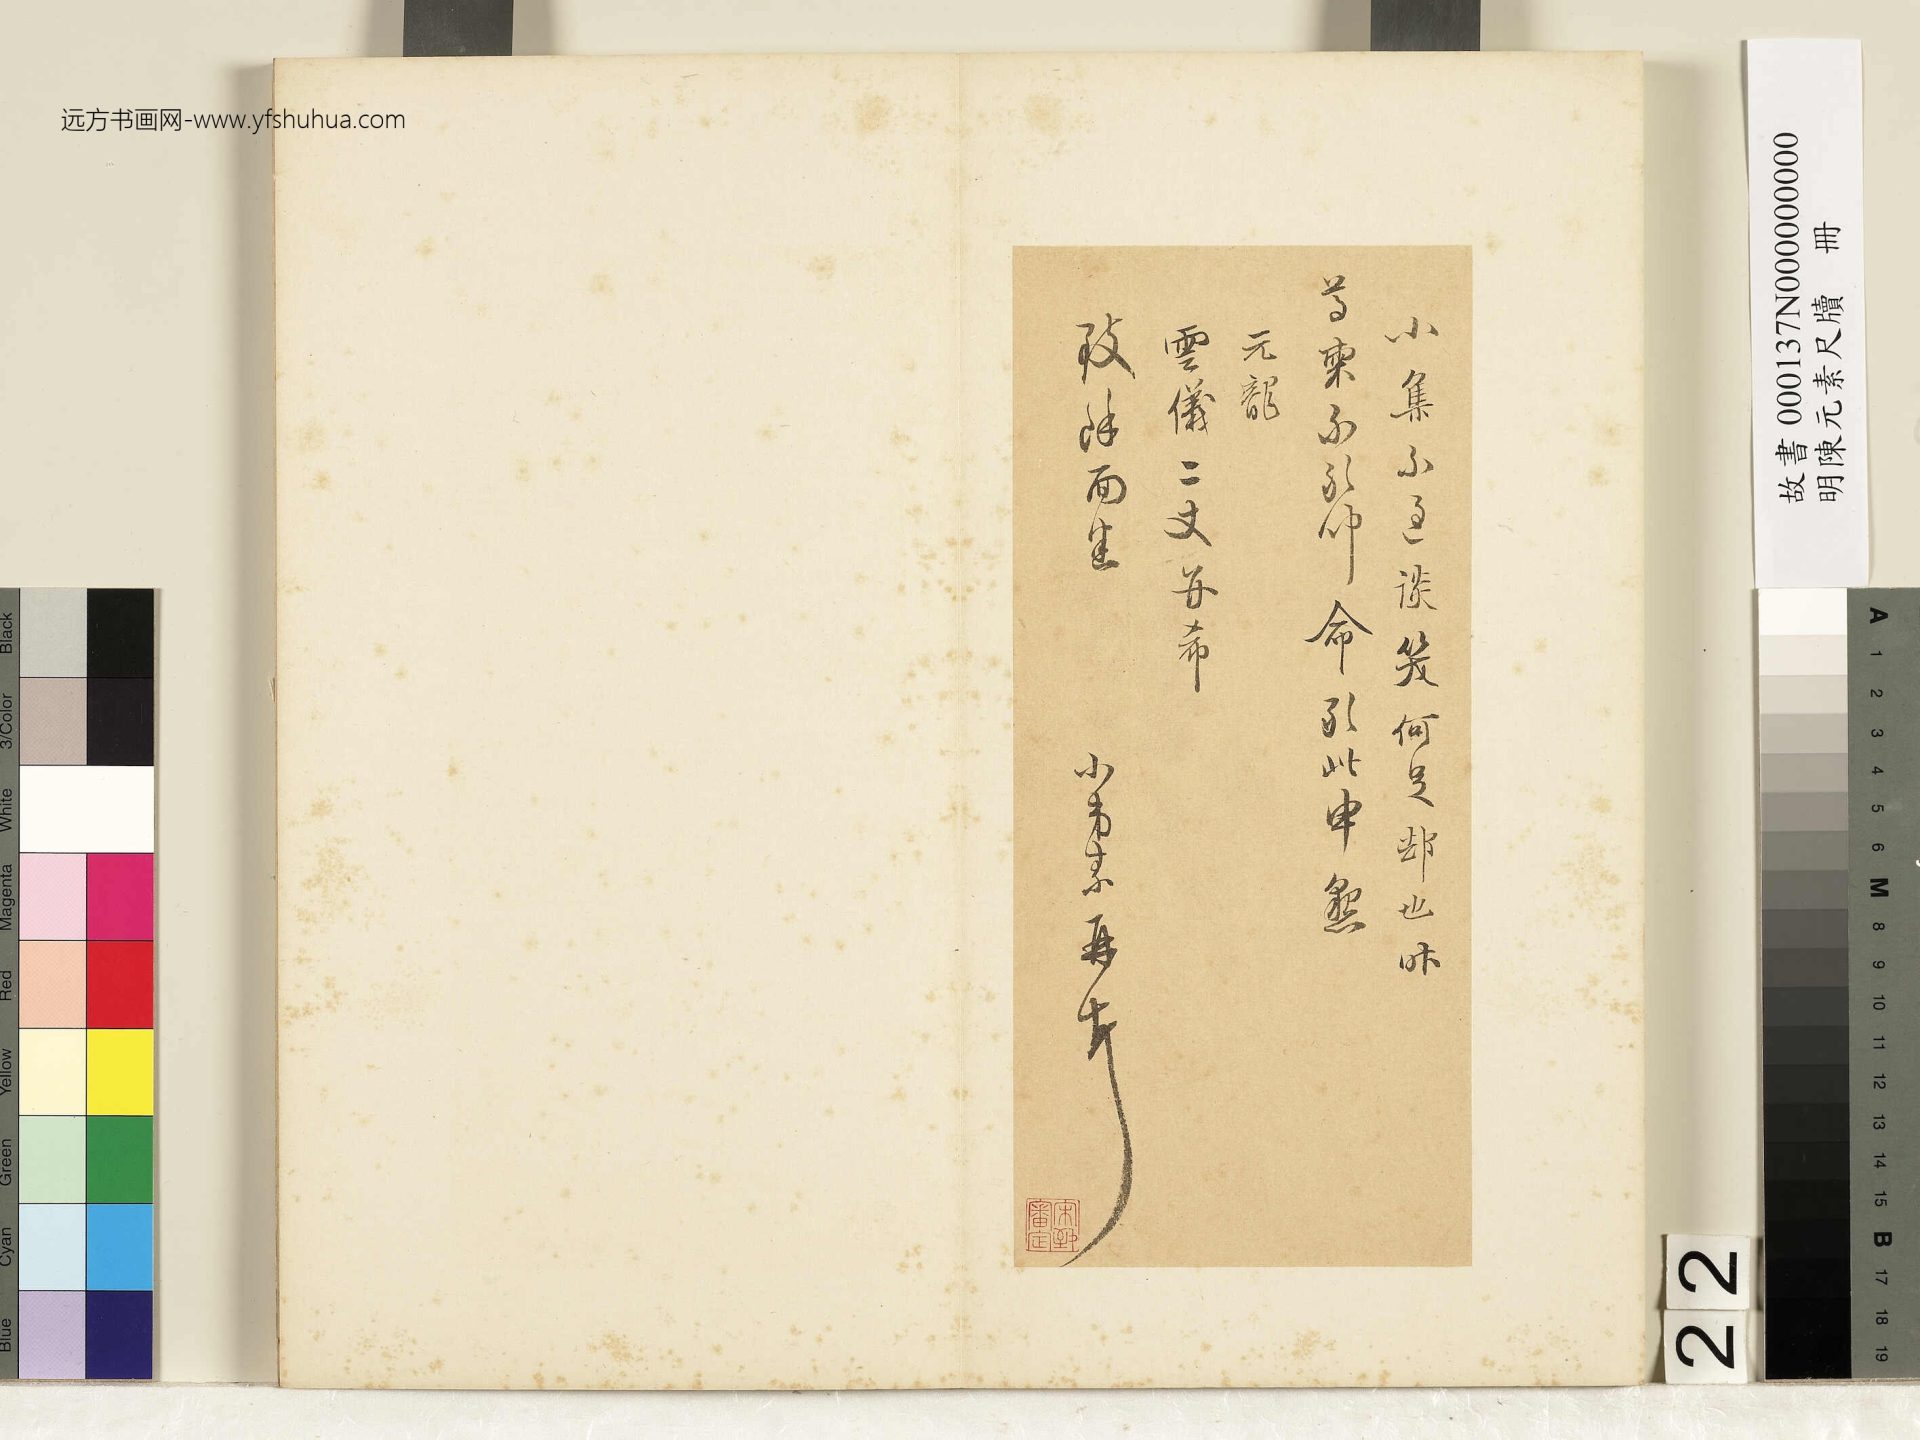 远方书画网-www.yfshuhua.com
小集不過談笑何足却也昨
尊柬不敢仰命敢此申懇
元龍
雲儀二丈并希
致 面
小弟素再
宋 審定
故書 000137N000000000
明陳元素尺牘 冊
22
Black
3/Color
White
Magenta
Red
Yellow
Green
Cyan
Blue
A
1
2
3
4
5
6
M
8
9
10
11
12
13
14
15
B
17
18
19